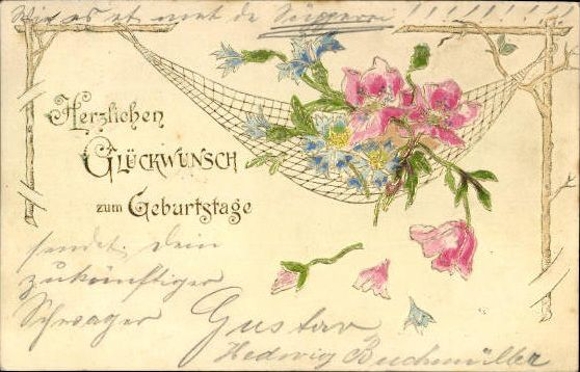 Wie es et met de !!!!!!!!
Herzlichen
Glückwunsch
zum Geburtstage
sendet dein
zukünftiger
Schwager Gustav
Hedwig Buchmüller